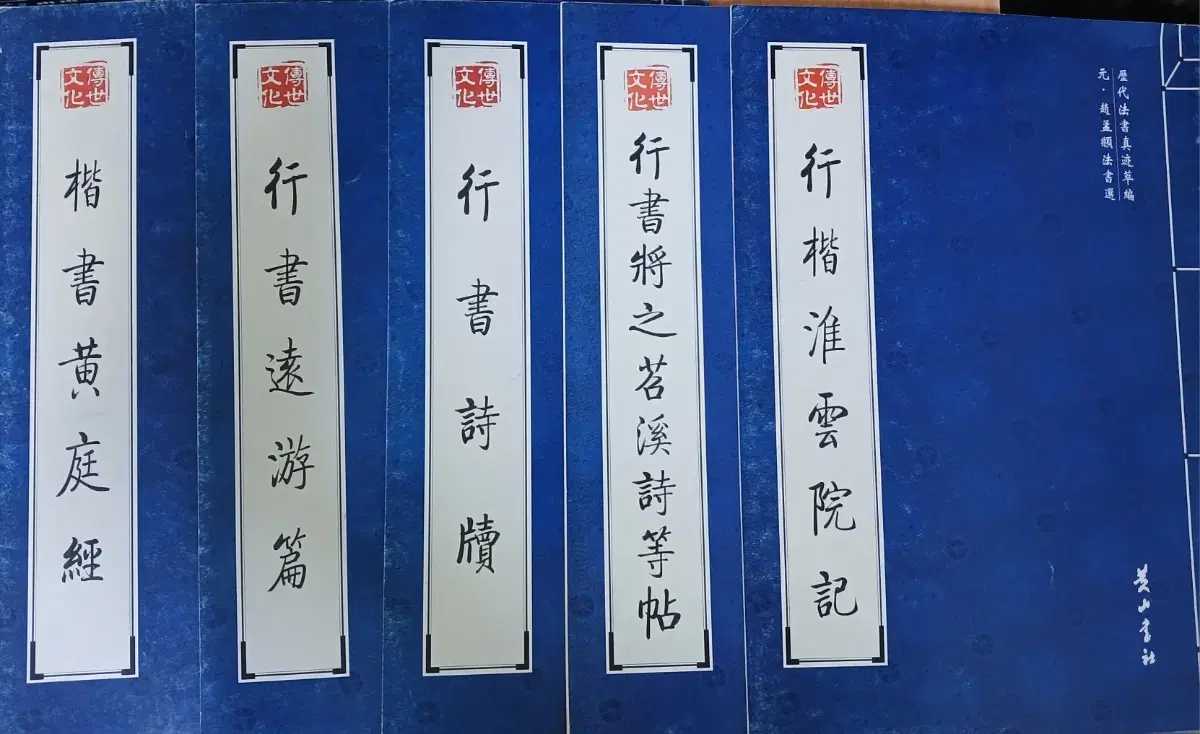 歷代法書真迹萃編
元·趙孟頫法書選
黄山書社
傳世
文化
行楷淮雲院記
傳世
文化
行書將之苕溪詩等帖
傳世
文化
行書詩牘
傳世
文化
行書遠游篇
傳世
文化
楷書黄庭經